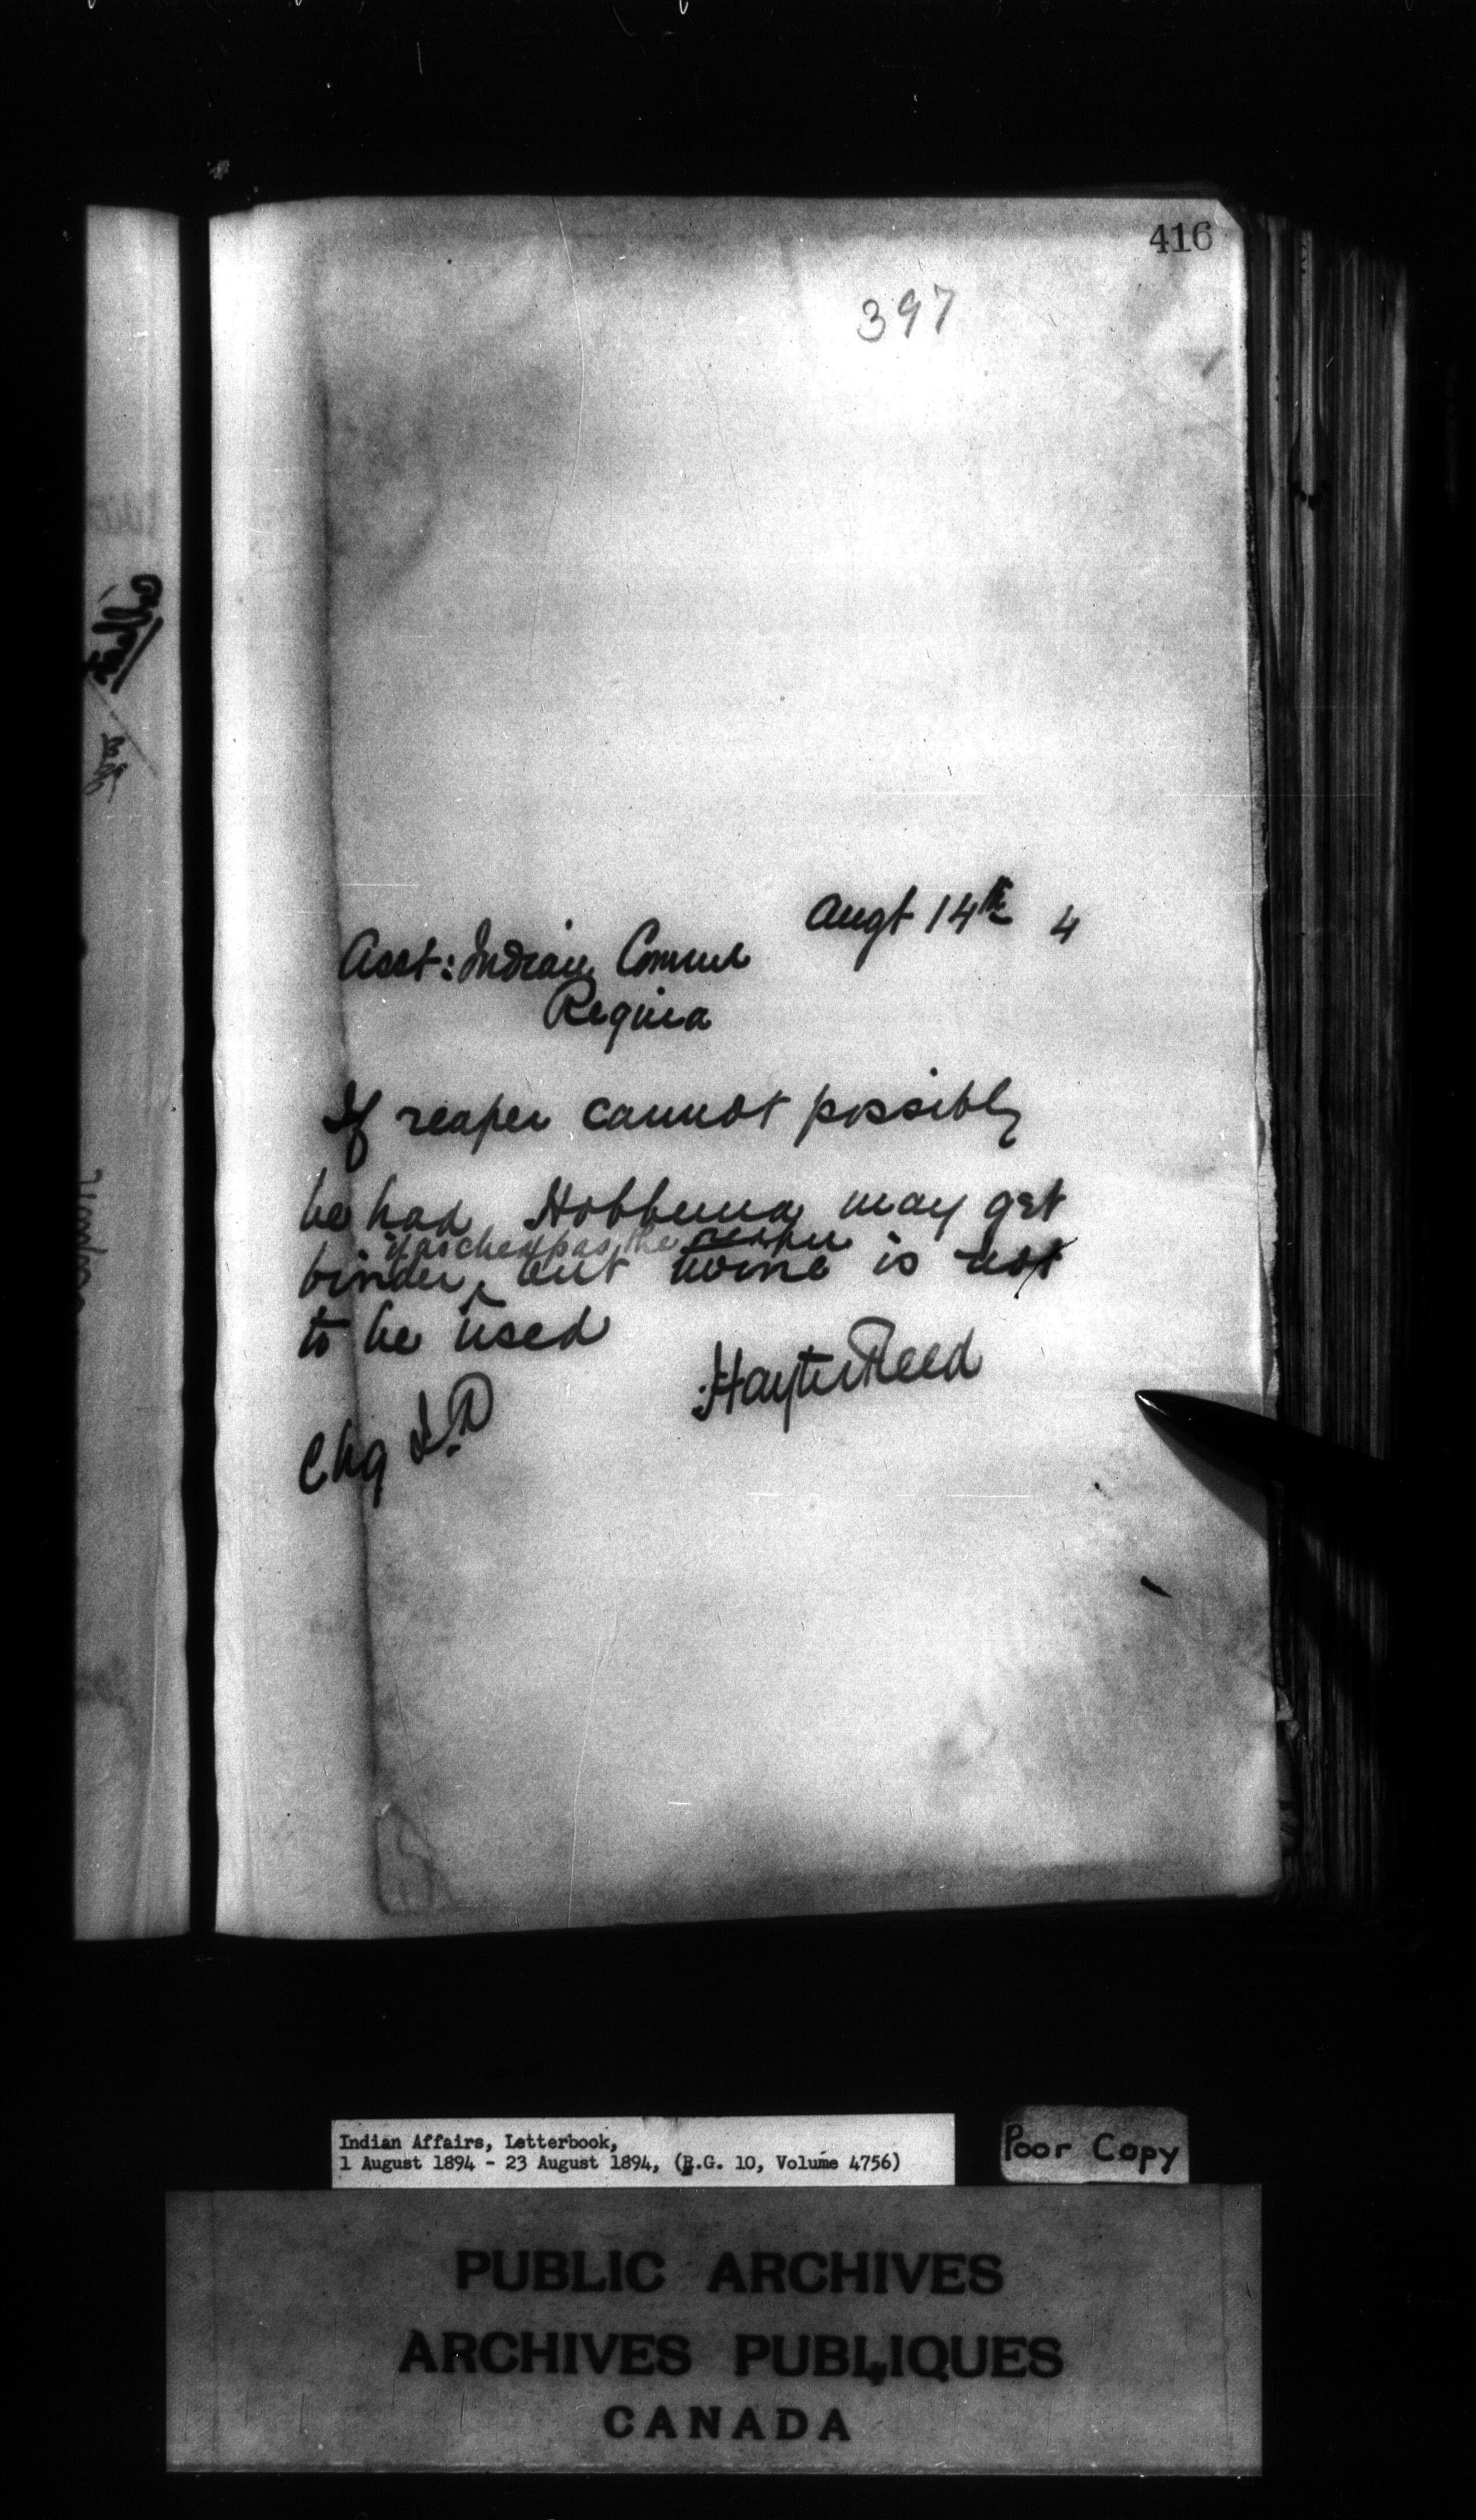 416
397
Augt 14th 4
Asst: Indian Commr
Regina
If reaper cannot possibly
be had, Hobbema may get
if as cheap as the reaper
binder, but twine is not
to be used
Hayter Reed
Chg I.D
Indian Affairs, Letterbook,
1 August 1894 - 23 August 1894, (R.G. 10, Volume 4756)
Poor Copy
PUBLIC ARCHIVES
ARCHIVES PUBLIQUES
CANADA